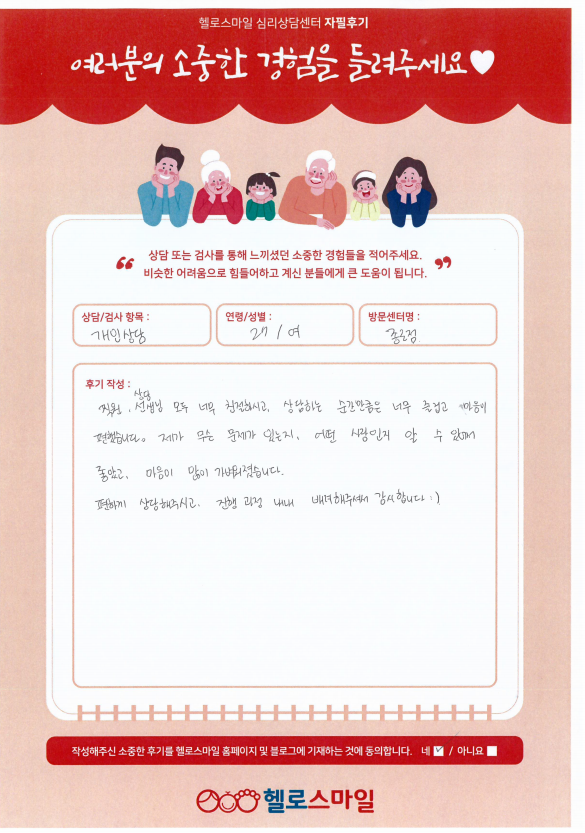 헬로스마일 심리상담센터 자필후기
여러분의 소중한 경험을 들려주세요
“ 상담 또는 검사를 통해 느끼셨던 소중한 경험들을 적어주세요.
비슷한 어려움으로 힘들어하고 계신 분들에게 큰 도움이 됩니다. ”
상담/검사 항목 :
개인상담
연령/성별 :
27 / 여
방문센터명 :
종로점
후기 작성 :
직원, 상담 선생님 모두 너무 친절하시고, 상담하는 순간만큼은 너무 즐겁고 마음이
편했습니다. 제가 무슨 문제가 있는지, 어떤 사람인지 알 수 있어서
좋았고, 마음이 많이 가벼워졌습니다.
편하게 상담해주시고, 진행 과정 내내 배려해주셔서 감사합니다 :)
작성해주신 소중한 후기를 헬로스마일 홈페이지 및 블로그에 기재하는 것에 동의합니다. 네 ☑ / 아니요 ☐
헬로스마일